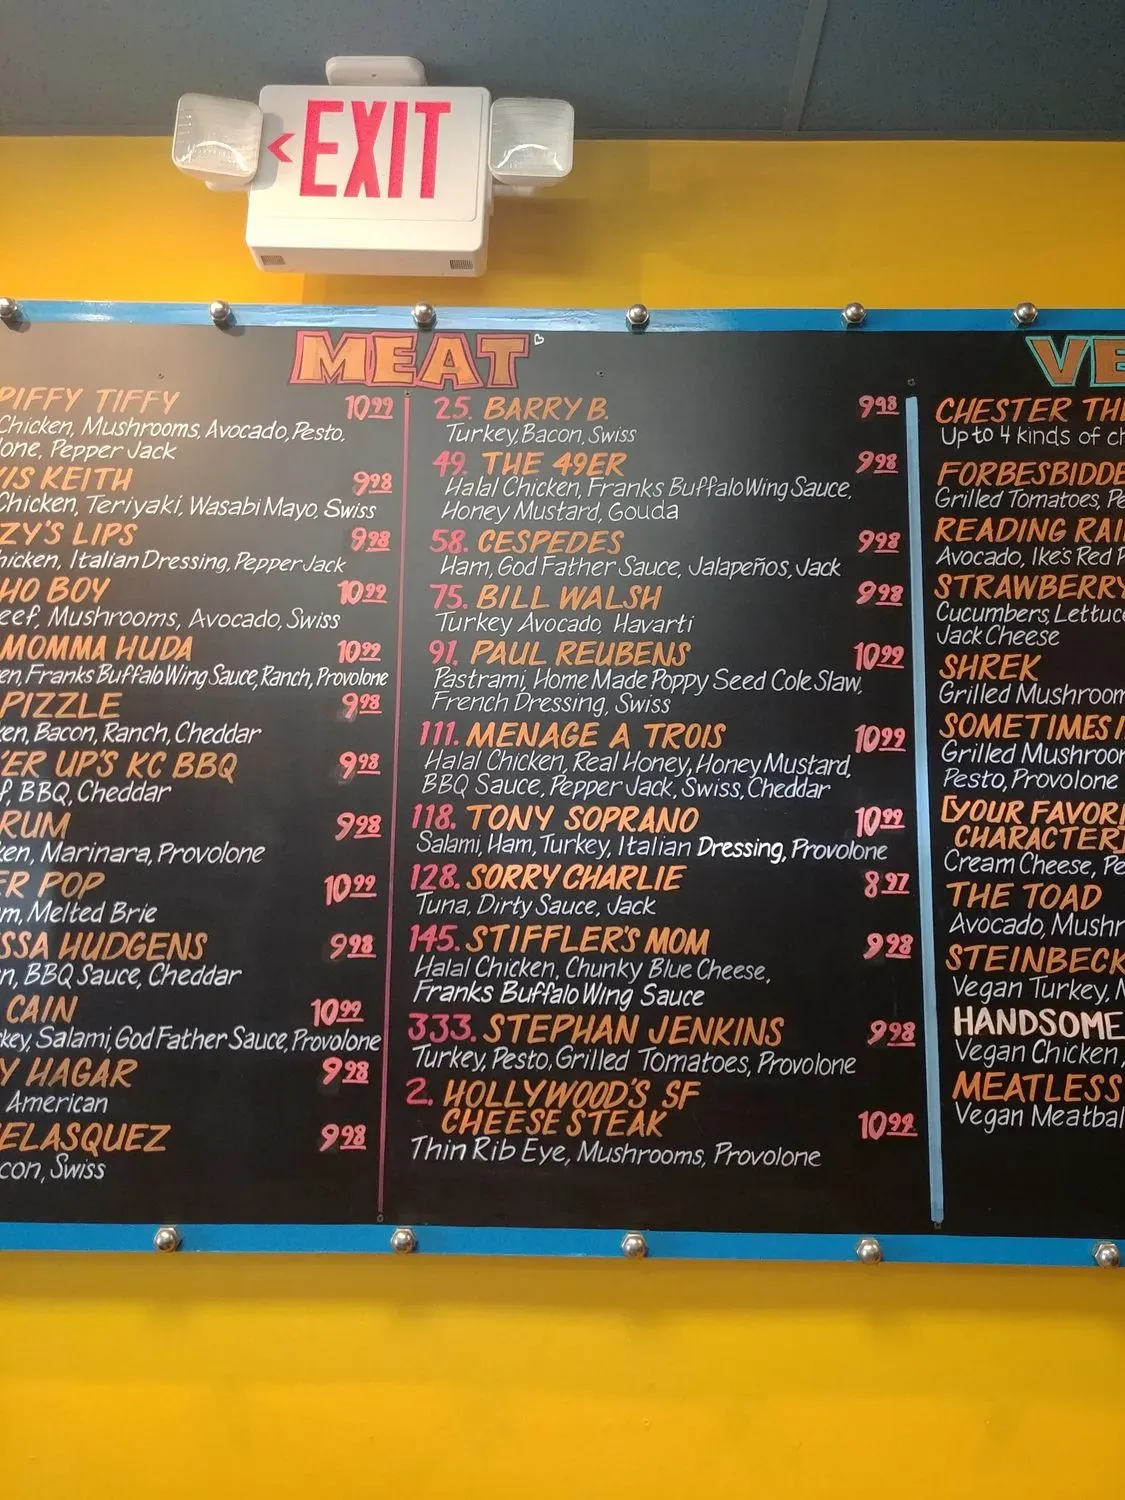 EXIT
MEAT
PIFFY TIFFY 10.99
Chicken, Mushrooms, Avocado, Pesto,
one, Pepper Jack
IS KEITH 9.98
Chicken, Teriyaki, Wasabi Mayo, Swiss
ZY'S LIPS 9.98
hicken, Italian Dressing, Pepper Jack
HO BOY 10.99
eef, Mushrooms, Avocado, Swiss
MOMMA HUDA 10.99
en, Franks Buffalo Wing Sauce, Ranch, Provolone
PIZZLE 9.98
ken, Bacon, Ranch, Cheddar
'ER UP'S KC BBQ 9.98
f, BBQ, Cheddar
RUM 9.98
ken, Marinara, Provolone
ER POP 10.99
m, Melted Brie
SSA HUDGENS 9.98
n, BBQ Sauce, Cheddar
CAIN 10.99
key, Salami, God Father Sauce, Provolone
Y HAGAR 9.98
American
ELASQUEZ 9.98
con, Swiss
25. BARRY B. 9.98
Turkey, Bacon, Swiss
49. THE 49ER 9.98
Halal Chicken, Franks Buffalo Wing Sauce,
Honey Mustard, Gouda
58. CESPEDES 9.98
Ham, God Father Sauce, Jalapeños, Jack
75. BILL WALSH 9.98
Turkey Avocado, Havarti
91. PAUL REUBENS 10.99
Pastrami, Home Made Poppy Seed Cole Slaw,
French Dressing, Swiss
111. MENAGE A TROIS 10.99
Halal Chicken, Real Honey, Honey Mustard,
BBQ Sauce, Pepper Jack, Swiss, Cheddar
118. TONY SOPRANO 10.99
Salami, Ham, Turkey, Italian Dressing, Provolone
128. SORRY CHARLIE 8.97
Tuna, Dirty Sauce, Jack
145. STIFFLER'S MOM 9.98
Halal Chicken, Chunky Blue Cheese,
Franks Buffalo Wing Sauce
333. STEPHAN JENKINS 9.98
Turkey, Pesto, Grilled Tomatoes, Provolone
2. HOLLYWOOD'S SF
CHEESE STEAK 10.99
Thin Rib Eye, Mushrooms, Provolone
VE
CHESTER TH
Up to 4 kinds of ch
FORBESBIDDE
Grilled Tomatoes, Pe
READING RAI
Avocado, Ike's Red P
STRAWBERRY
Cucumbers, Lettuce
Jack Cheese
SHREK
Grilled Mushroom
SOMETIMES I
Grilled Mushroom
Pesto, Provolone
[YOUR FAVORI
CHARACTER]
Cream Cheese, Pe
THE TOAD
Avocado, Mushr
STEINBECK
Vegan Turkey,
HANDSOME
Vegan Chicken,
MEATLESS
Vegan Meatbal